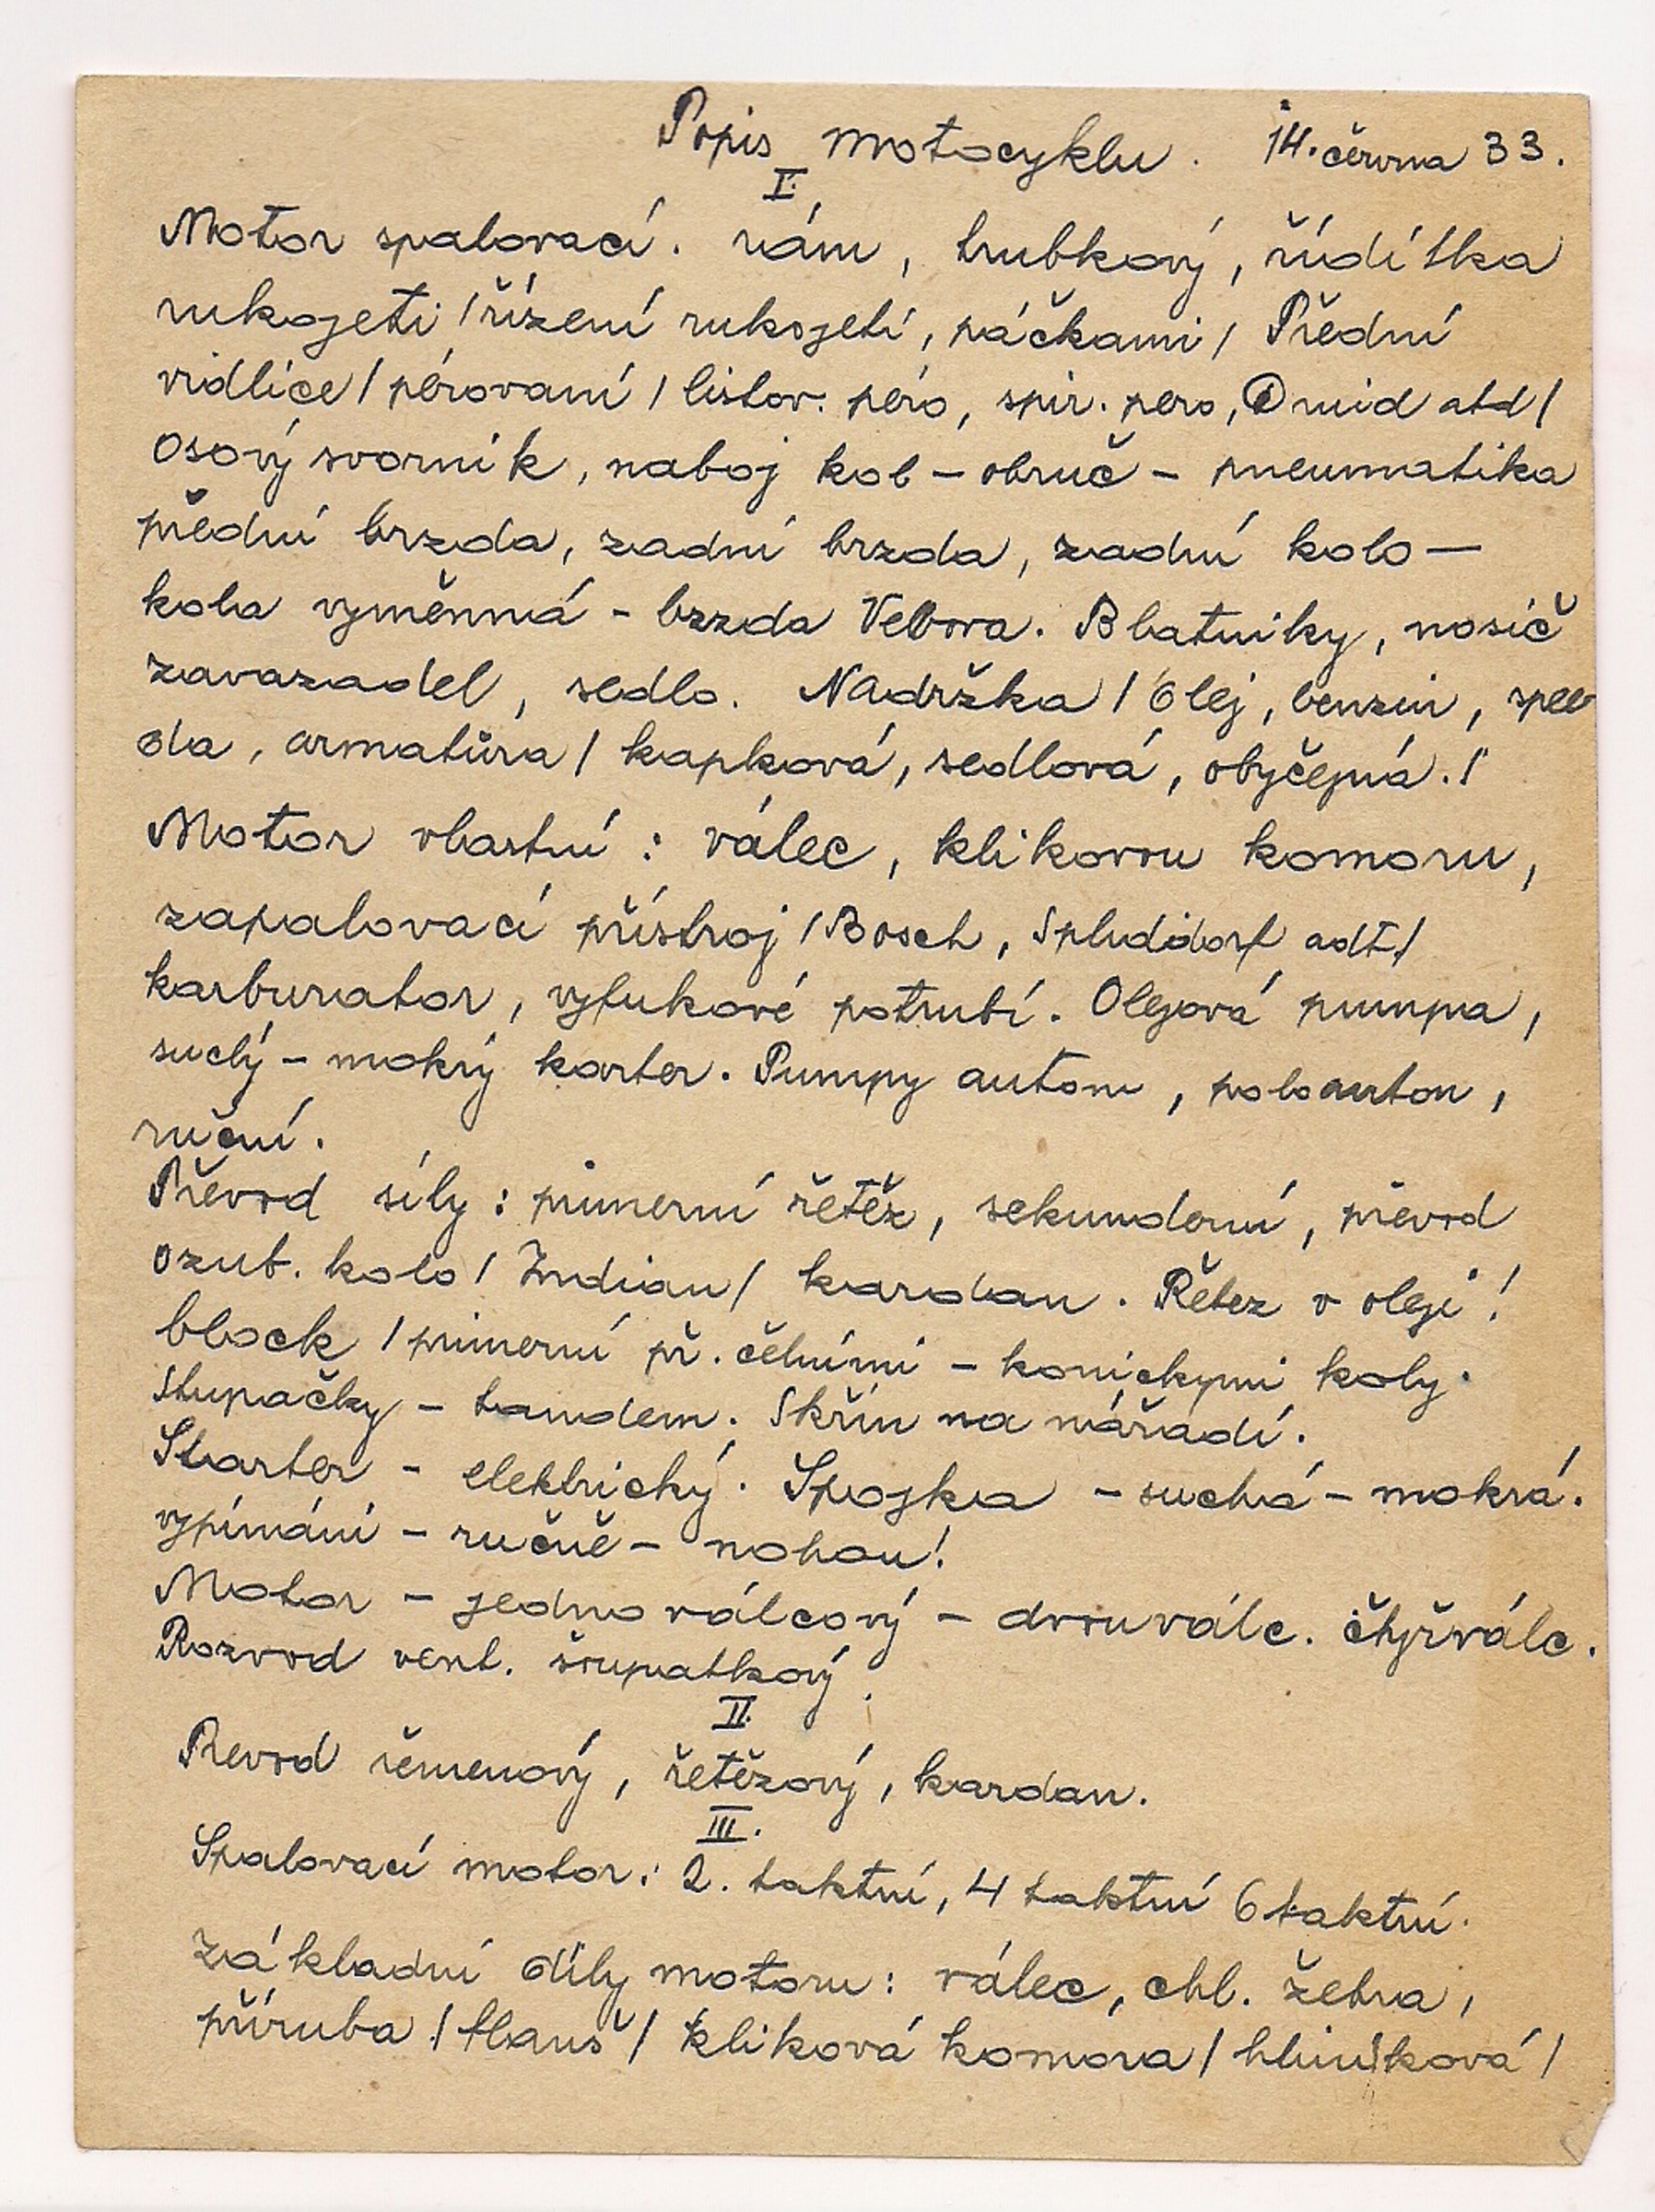 Popis motocyklu. 14. června 33.
I.
Motor spalovací. rám, trubkový, řídítka
rukojeti /řízení rukojetí, páčkami/ Přední
vidlice / pérovaní / listov. péro, spir. pero, Druid atd/
osový svorník, naboj kol – obruč – pneumatika
přední brzda, zadní brzda, zadní kolo –
kola vyměnná – brzda Vebora. Blatniky, nosič
zavazadel, sedlo. Nadržka / olej, benzin,
armatůra / kapková, sedlová, obyčejná./
Motor vlastní : válec, klikovou komoru,
zapalovací přístroj /Bosch, Splididorf adt./
karburator, vyfukové potrubí. Olejová pumpa,
suchý – mokrý karter. Pumpy autom, poloautom,
ruční.
Převod síly : primerní řetěz, sekunderní, převod
ozub. kolo / Indian / kardan. Řětez v oleji !
block / primerní př. čelními – konickymi koly.
Stupačky – tandem. Skřín na nářadí.
Starter – elektrický. Spojka – suchá – mokrá.
vypínání – ručně – nohou!
Motor – jednoválcový – dvouválc. čtyřválc.
Rozvod vent. šoupatkový.
II.
Prevod řemenový, řetězový, kardan.
III.
Spalovací motor: 2. taktní, 4 taktní 6 taktní.
základní díly motoru: válec, chl. žebra,
příruba / flanš / kliková komora / hliníková /